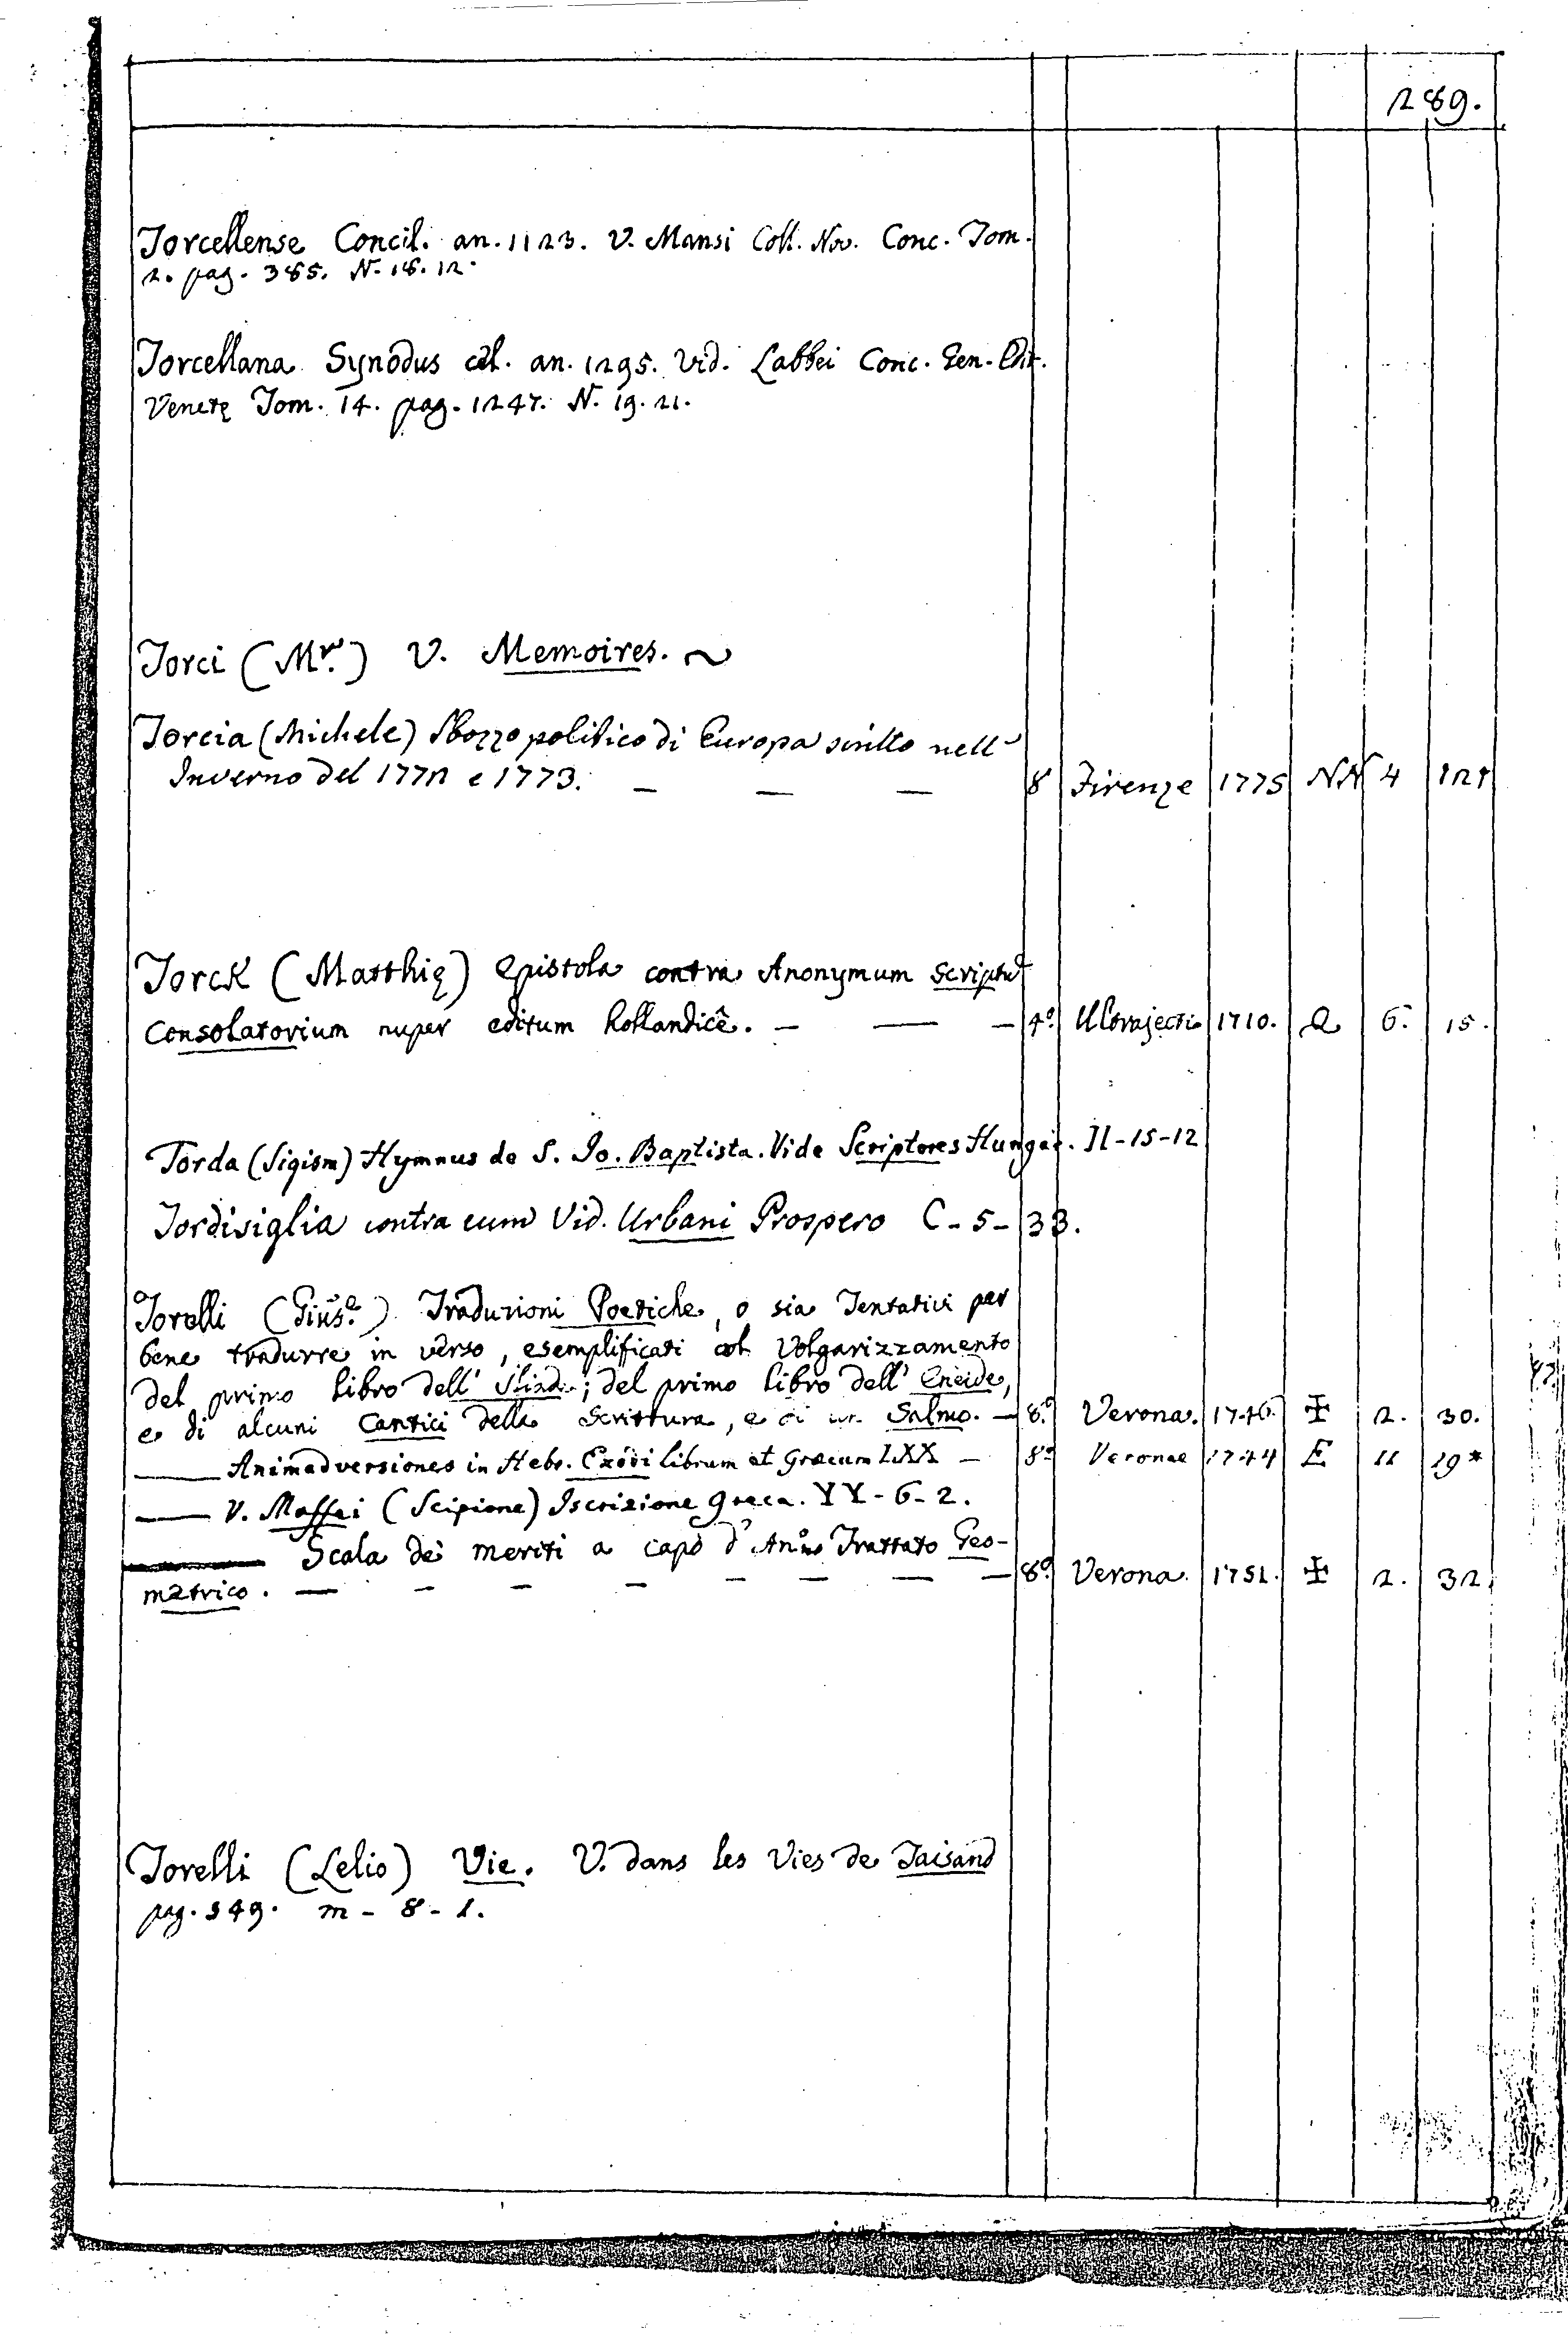 289.
Torcellense Concil. an. 1123. V. Mansi Coll. Nov. Conc. Tom.
2. pag. 385. N. 18. 12.
Torcellana Synodus cel. an. 1295. Vid. Labbei Conc. Gen. Edit.
Venetę Tom. 14. pag. 1247. N. 19. 21.
Torci (Mr.) V. Memoires. ~
Torcia (Michele) Sbozzo politico di Europa scritto nell'
Inverno del 1772 e 1773. — — — 8 Firenze 1775 NN 4 121
Torck (Matthię) Epistola contra Anonymum scriptū
Consolatorium nuper editum hollandicè. — — — 4.º Ultrajecti 1710. Q 6. 15.
Torda (Sigism) Hymnus de S. Io. Baptista. Vide Scriptores Hungar. II-15-12
Tordisiglia contra eum Vid. Urbani Prospero C-5-33.
Torelli (Gius.e) Traduzioni Poetiche, o sia Tentativi per
bene tradurre in verso, esemplificati col Volgarizzamento
del primo libro dell' ; del primo libro dell' Eneide,
e di alcuni Cantici della Scrittura, e di un Salmo. — 8.º Verona. 1746. ✠ 2. 30.
—— Animadversiones in Hebr. Exodi librum et Græcam LXX — 8º Veronae 1744 E 11 19*
—— V. Maffei (Scipione) Iscrizione greca. YY-6-2.
—— Scala dei meriti a capo d'Anno Trattato Geo-
metrico. — — — — — — — — 8º Verona. 1751. ✠ 2. 32.
Torelli (Lelio) Vie. V. dans les Vies de Taisand
pag. 549. m-8-1.